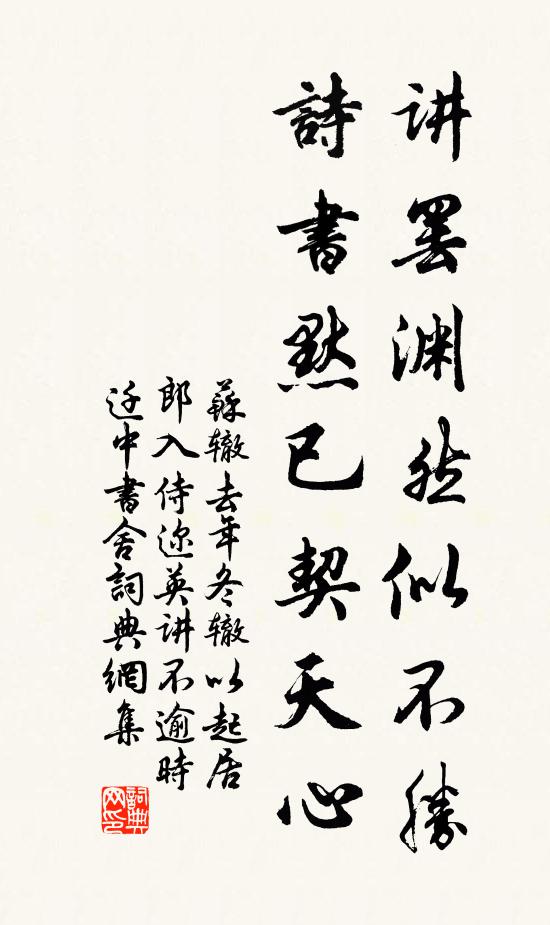 讲罢渊然似不勝
詩書黙已契天心
蘇辙去年冬辙以起居
郎入侍迩英讲不逾時
迁中書舍詞典網集
詞典
网印